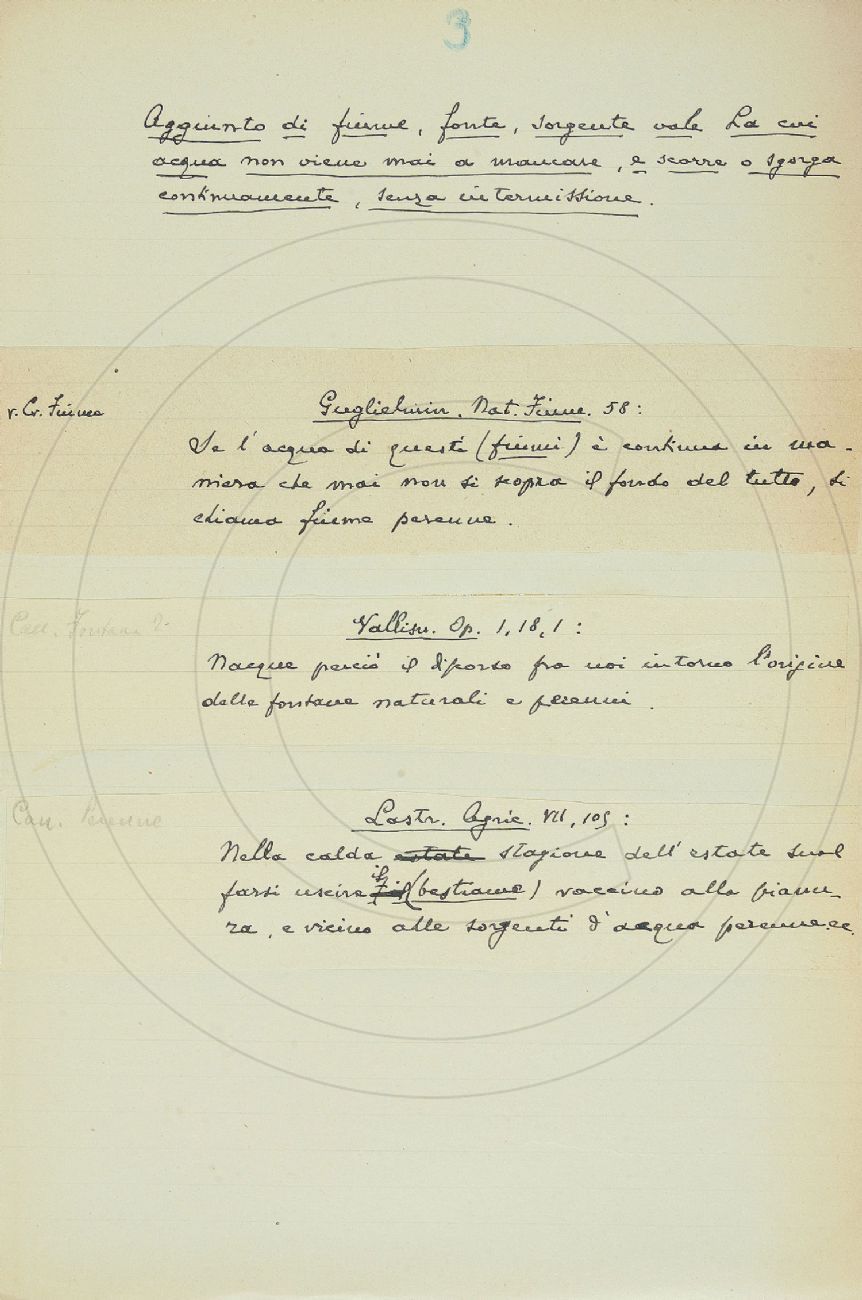 3
Aggiunto di fiume, fonte, sorgente vale La cui
acqua non viene mai a mancare, e scorre o sgorga
continuamente, senza intermissione.
v. Cr. Fiume
Guglielmin. Nat. Fium. 58:
Se l'acqua di questi (fiumi) è continua in ma-
niera che mai non si scopra il fondo del tutto, si
chiama fiume perenne.
Vallisn. Op. 1, 18, 1:
Nacque perciò il discorso fra noi intorno l'origine
delle fontane naturali e perenni.
Can. Perenne
Lastr. Agric. VII, 105:
Nella calda estate stagione dell'estate suol
farsi uscire il (bestiame) vaccino alla pianu-
ra, e vicino alle sorgenti d'acqua perenne ec.